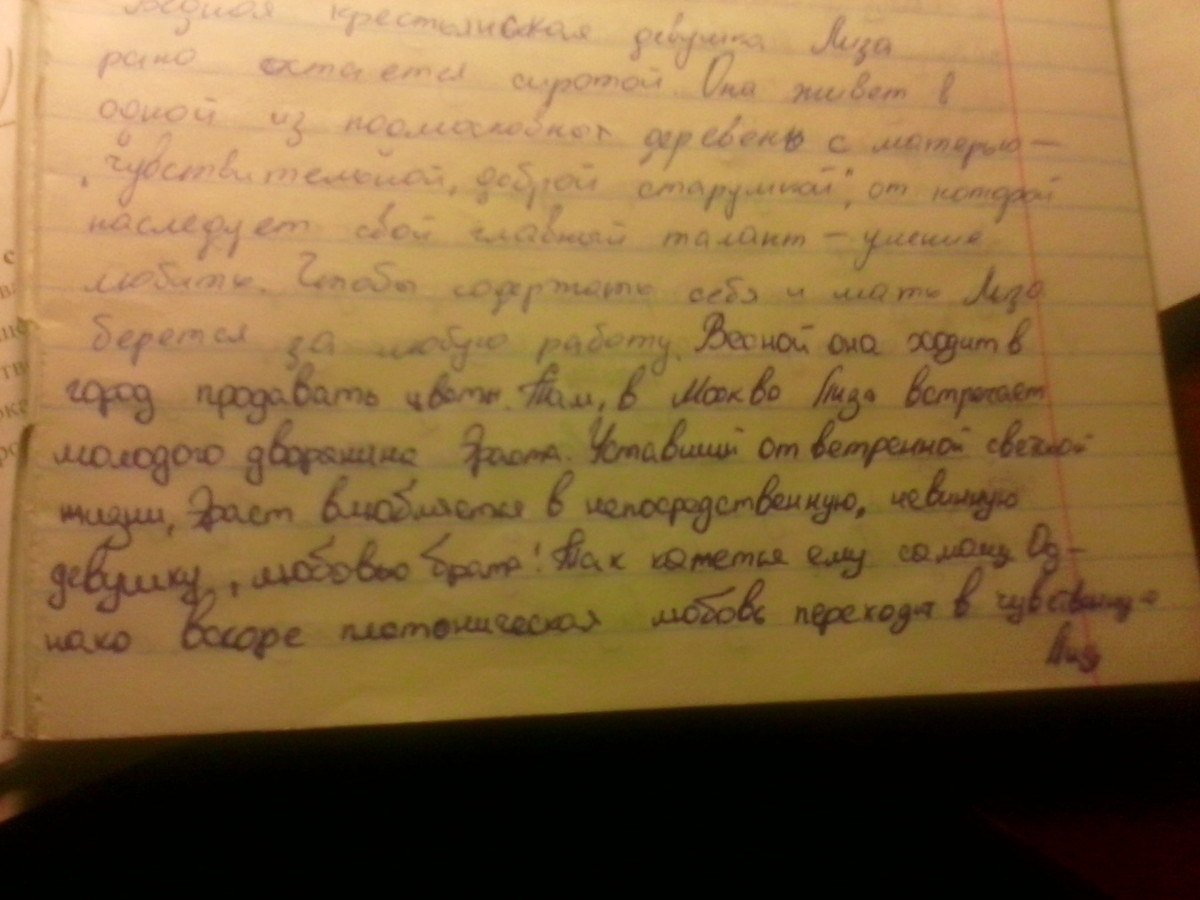 Бедная крестьянская девушка Лиза
рано остается сиротой. Она живет в
одной из подмосковных деревень с матерью —
"чувствительной, доброй старушкой", от которой
наследует свой главный талант — умение
любить. Чтобы содержать себя и мать Лиза
берется за любую работу. Весной она ходит в
город продавать цветы. Там, в Москве Лиза встречает
молодого дворянина Эраста. Уставший от ветренной светской
жизни, Эраст влюбляется в непосредственную, невинную
девушку „любовью брата". Так кажется ему самому. Од-
нако вскоре платоническая любовь переходит в чувственную
Лиза